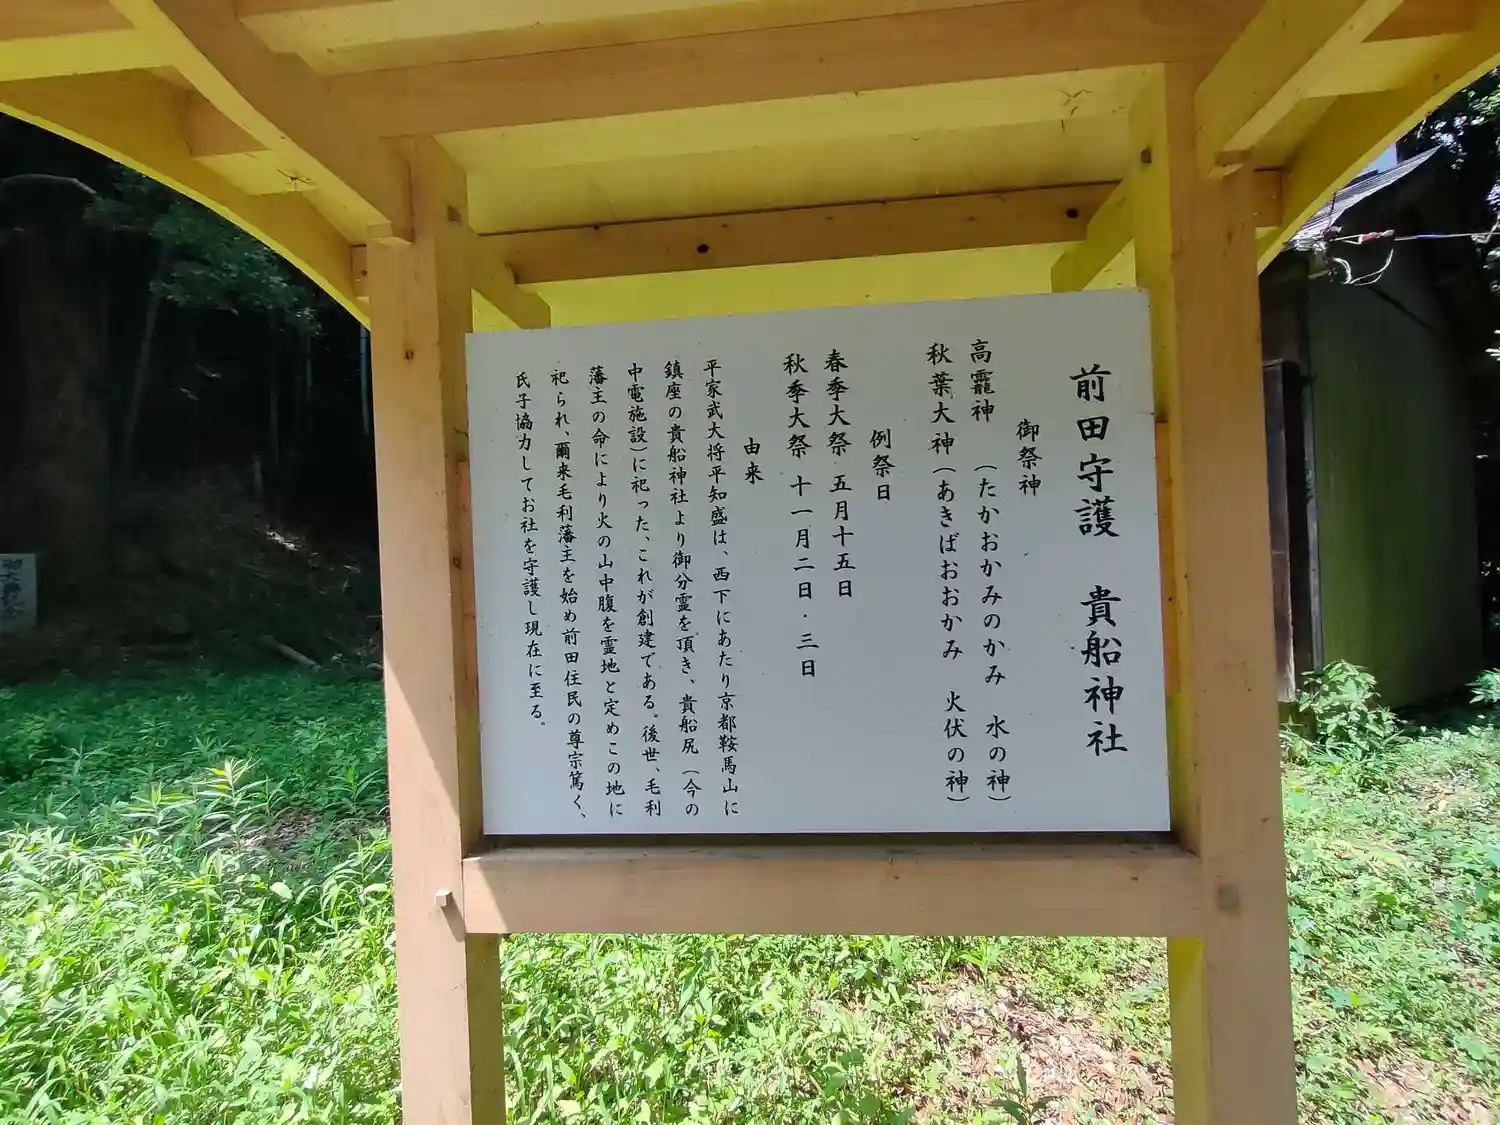 前田守護 貴船神社
御祭神
高龗神 (たかおかみのかみ 水の神)
秋葉大神(あきばおおかみ 火伏の神)
例祭日
春季大祭 五月十五日
秋季大祭 十一月二日・三日
由来
平家武大将平知盛は、西下にあたり京都鞍馬山に
鎮座の貴船神社より御分霊を頂き、貴船尻(今の
中電施設)に祀った、これが創建である。後世、毛利
藩主の命により火の山中腹を霊地と定めこの地に
祀られ、爾来毛利藩主を始め前田住民の尊宗篤く、
氏子協力してお社を守護し現在に至る。